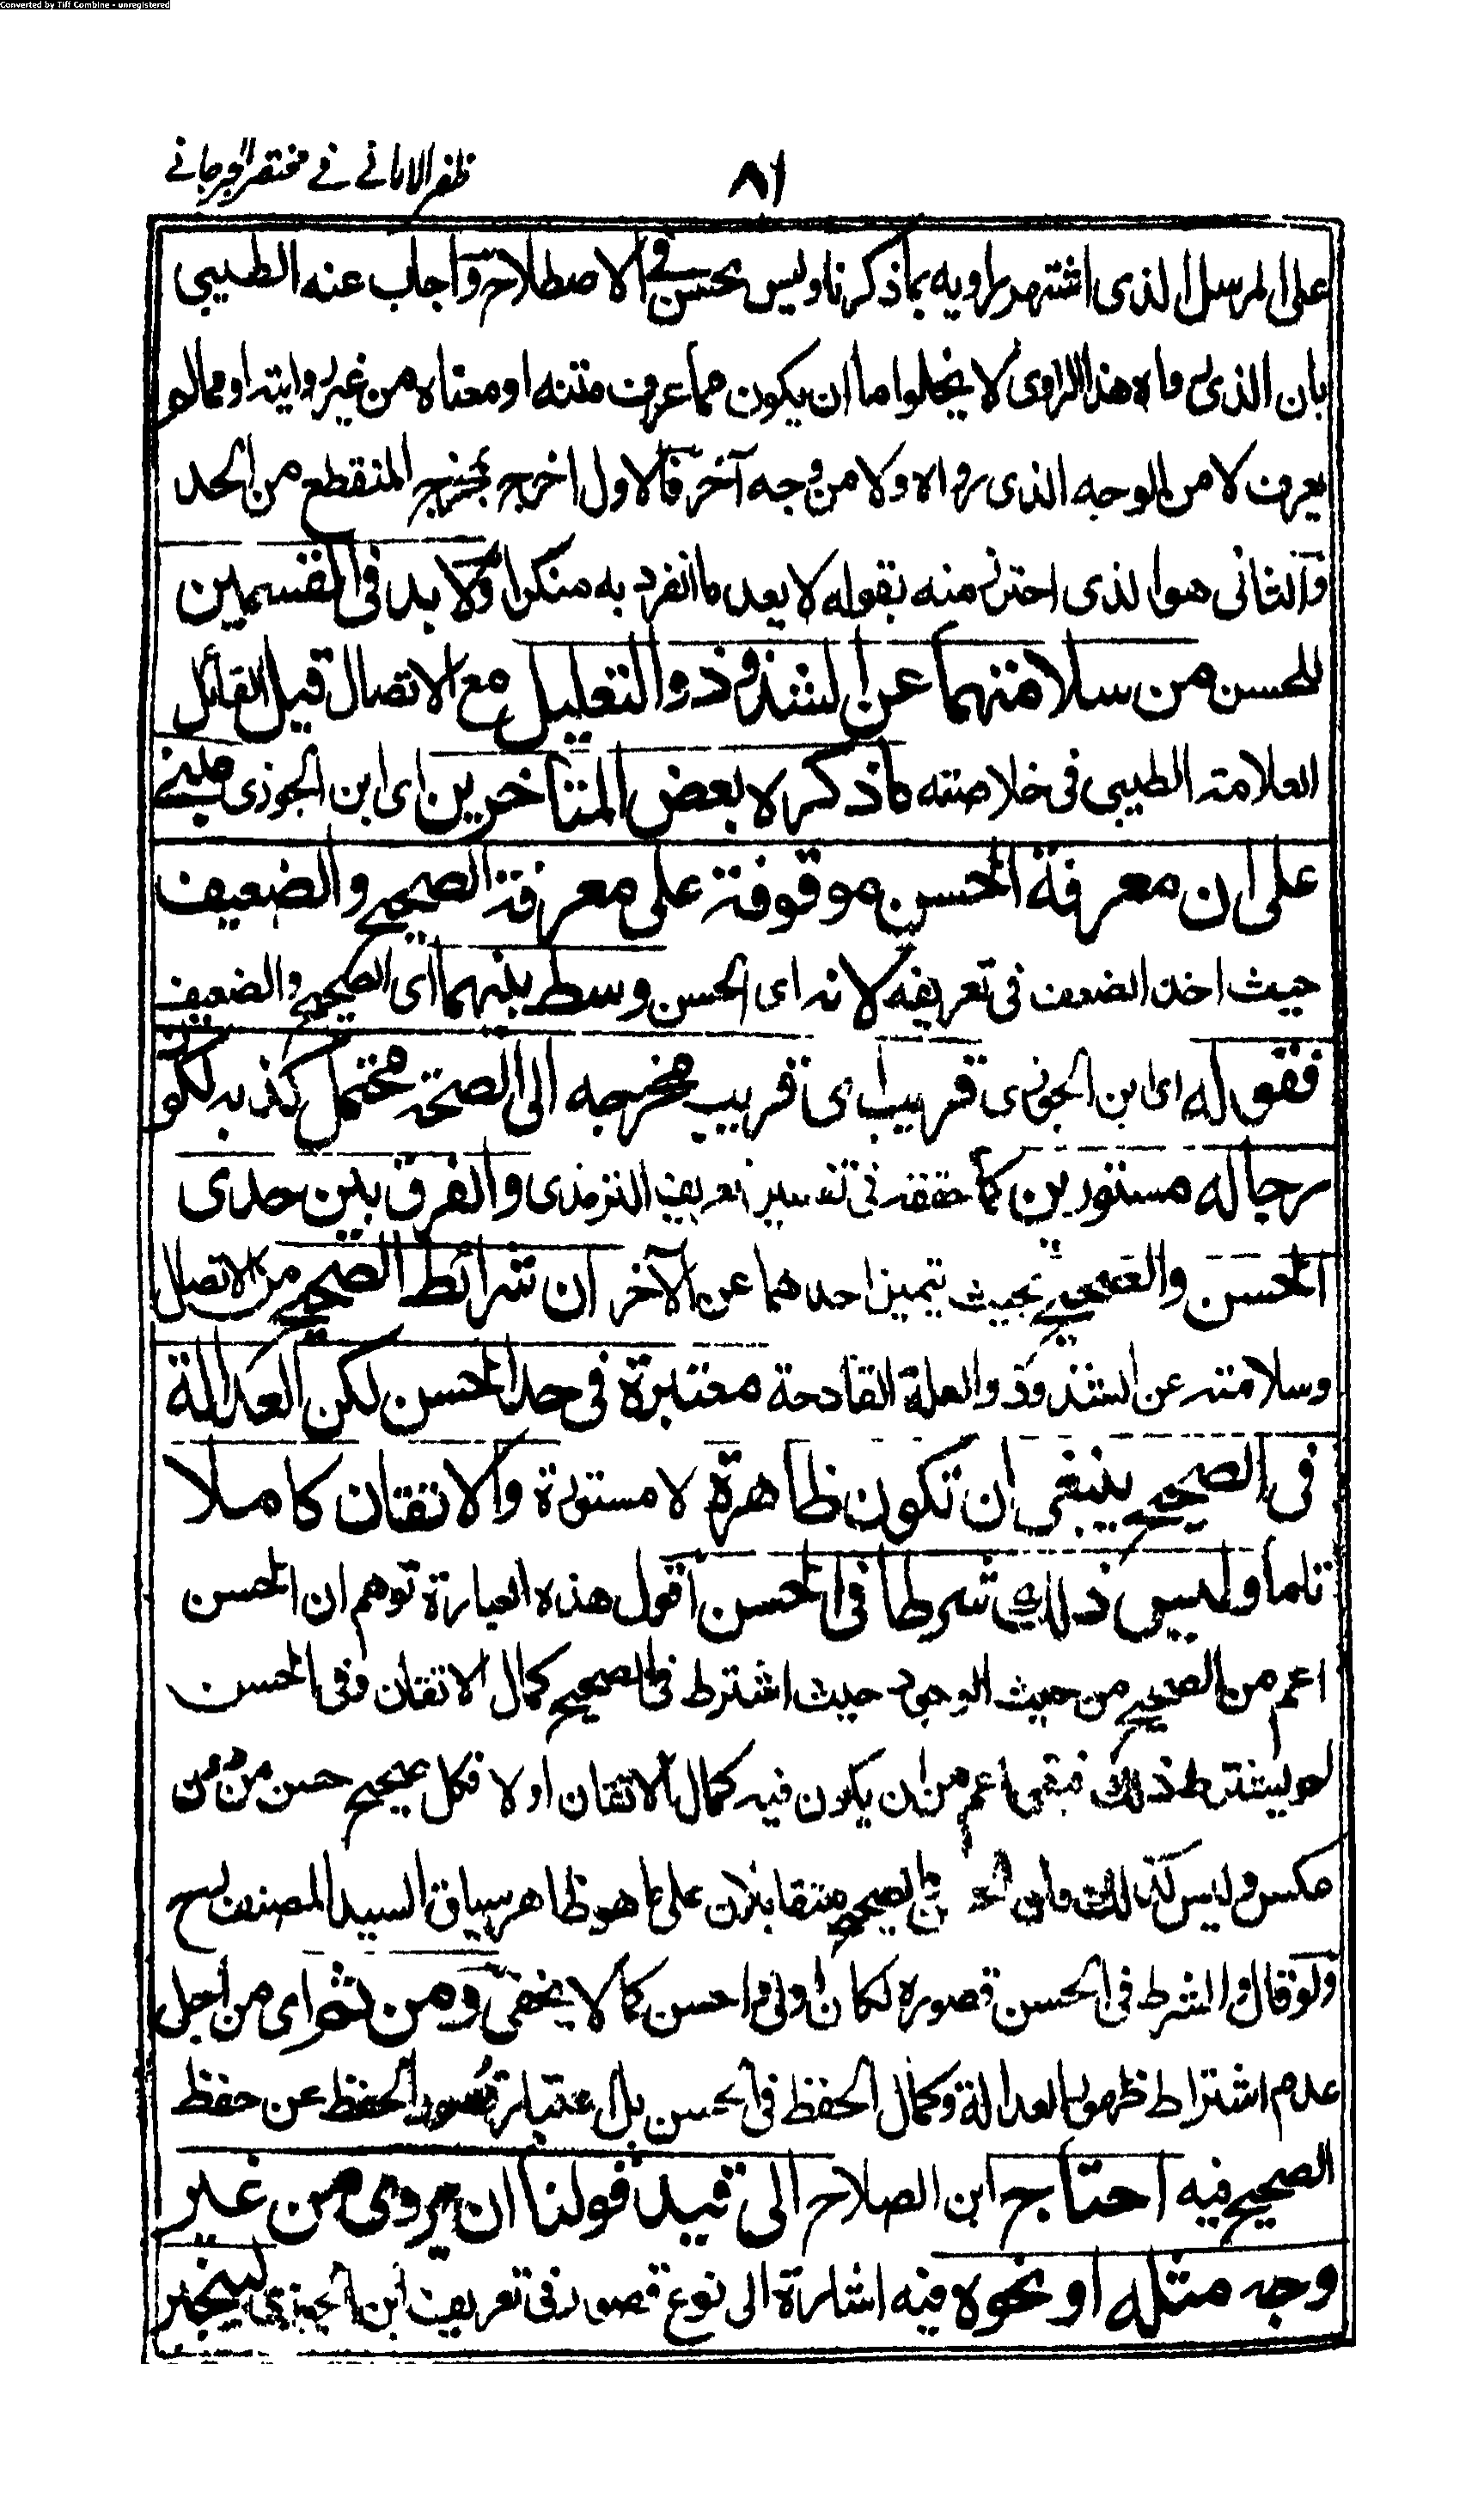 Converted by Tiff Combine - unregistered
ظفر الامانے فے مختصر الجرجانے
۸۱
على المرسل الذى اشتهر راويه بما ذكرنا وليس بحسن فى الاصطلاح واجاب عنه الطيبى
بان الذى رواه هذا الراوى لا يخلو اما ان يكون مما عرف متنه او معناه من غير روايته او مما لم
يعرف لا من الوجه الذى رواه ولا من وجه آخر فالاول اخرجه بخرجه المنقطع من الحد
والثانى هو الذى احترز منه بقوله لا يعد ما انفرد به منكرا ولا بد فى القسمين
للحسن من سلامتهما عن الشذوذ والتعليل مع الاتصال قيل القائل
العلامة الطيبى فى خلاصته ما ذكره بعض المتأخرين اى ابن الجوزى مبنے
على ان معرفة الحسن موقوفة على معرفة الصحيح والضعيف
حيث اخذ الضعف فى تعريفه لانه اى الحسن وسط بينهما اى الصحيح والضعيف
فقوله اى ابن الجوزى قريب اى قريب مخرجه الى الصحة محتمل كذبه لكو
رجاله مستورين كما حققه فى تفسير تعريف الترمذى والفرق بين حدى
الحسن والصحيح بحيث يتميز احدهما عن الآخر ان شرائط الصحيح من الاتصال
وسلامته عن الشذوذ والعلة القادحة معتبرة فى حد الحسن لكن العدالة
فى الصحيح ينبغى ان تكون ظاهرة لا مستورة والاتقان كاملا
تاما وليس ذلك شرطا فى الحسن اقول هذه العبارة توهم ان الحسن
اعم من الصحيح من حيث الوجود حيث اشترط فى الصحيح كمال الاتقان وفى الحسن
لم يشترط ذلك فبقى اعم من ان يكون فيه كمال الاتقان اولا فكل صحيح حسن من دون
عكس وليس كذلك فان الصحيح متقابلان على ما هو ظاهر سياق السيد المصنف رح
ولو قال والشرط فى الحسن قصوره لكان اولى واحسن كما لا يخفى ومن ثم اى من اجل
عدم اشتراط ظهور العدالة وكمال الحفظ فى الحسن بل اعتبار قصور الحفظ عن حفظ
الصحيح فيه احتاج ابن الصلاح الى قيد قولنا ان يروى من غير
وجه مثله او نحوه فيه اشارة الى نوع قصور فى تعريف ابن الجوزى لينجبر